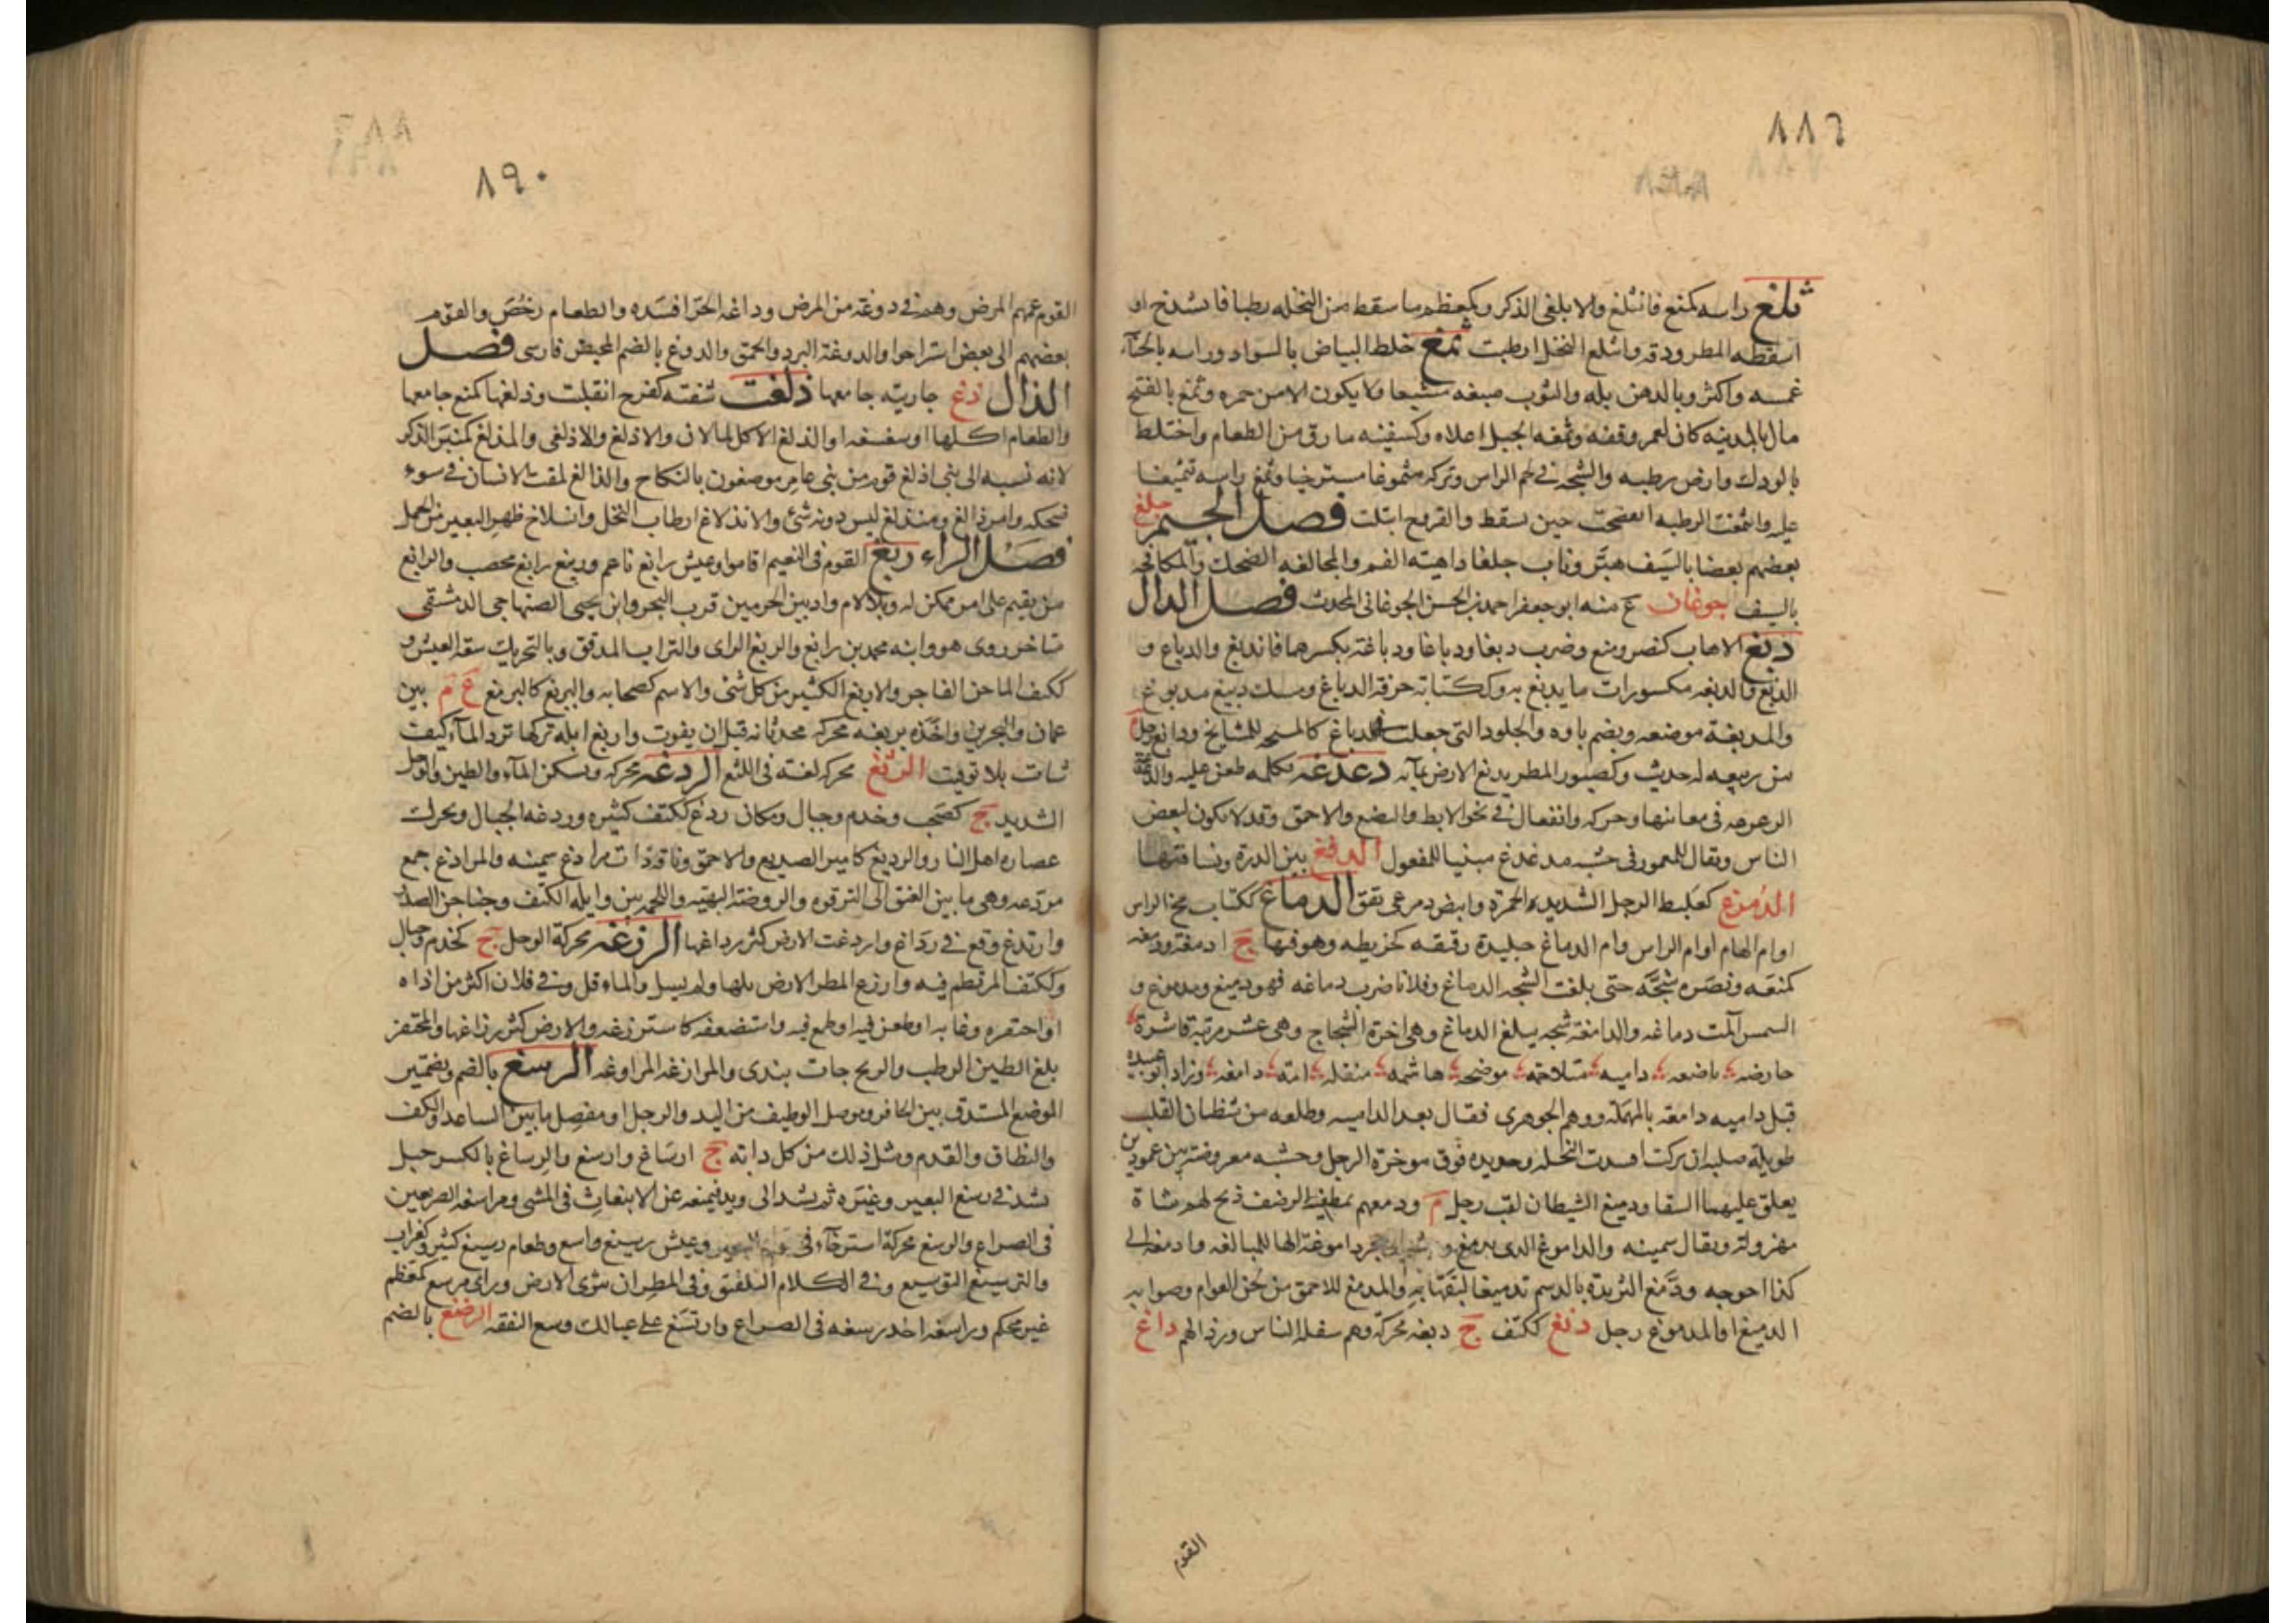 ٨٨٩
ثلغ راسه كمنع فانثلغ والاثلغي الذكر وكمعظم ما سقط من النخله رطبا فانشدخ او
اسقطه المطر ودقه واثلغ النخل ارطبت ثمغ خلط البياض بالسواد وراسه بالحناء
غمسه واكثر وبالدهن بله والثوب صبغه مشبعا ولا يكون الا من حمره وثمغ بالفتح
مال بالمدينه كان لعمر وقفه وثمغه الجبل اعلاه وكسفينه ما رق من الطعام واختلط
بالودك وارض رطبه والشجه في لحم الراس وتركه مثموغا مسترخيا وثمغ راسه تثميغا
عله وانثمغت الرطبه انفضخت حين تسقط والقروع ابتلت فصل الجيم جلغ
بعضهم بعضا بالسيف هبر وناب جلغا ذاهبة الفم والمجالغه الضحك والمكافحه
بالسيف جوغان ع منه ابو جعفر احمد بن الحسن الجوغاني المحدث فصل الدال
دبغ الاهاب كنصر ومنع وضرب دبغا ودباغا ودباغة بكسرهما فاندبغ والدباغ و
الدبغ والدبغه مكسورات ما يدبغ به وككتابة حرفة الدباغ ومسك دبيغ مدبوغ
والمدبغة موضعه وبضم باوه والجلود التي جعلت في الدباغ كالمشيخه للمشايخ ودابغ رجل م
من ربيعه له حديث وكصبور المطر يدبغ الارض بمآئه دغدغه بكلمه طعن عليه والدغدغة
الزعزعه في معانيها وحركه وانفعال في نحو الابط والبضع والاخمص وقد لا يكون لبعض
الناس ويقال للمغموز في حسبه مدغدغ مبنيا للمفعول الدفغ تبن الذرة ونسافتها
الدمرغ كعلبط الرجل الشديد الحمرة وابيض دمرغي يقق الدماغ ككتاب مخ الراس
او ام الهام او ام الراس وام الدماغ جليدة رقيقه كخريطه وهو فيها ج ادمغه ودمغه
كمنعه ونصره شجه حتى بلغت الشجه الدماغ وفلانا ضرب دماغه فهو دميغ ومدموغ و
الشمس آلمت دماغه والدامغه شجه تبلغ الدماغ وهي اخرة الشجاج وهي عشر مرتبة قاشرة
حارصه باضعه داميه متلاحمه موضحه هاشمه منقله امه دامغه وزاد ابو عبيده
قبل داميه دامعه بالمهملة ووهم الجوهري فقال بعد الداميه وطلعه من شظيات القلب
طويلة صلبه ان تركت افسدت النخله وحديدة فوق موخرة الرحل وخشبه معروضه بين عمودين
يعلق عليهما السقا ودميغ الشيطان لقب رجل م ودمغهم بمطفئة الرضف ذبح لهم شاة
مهزولة ويقال سمينه والداموغ الذي يدمغ و حجر داموغة الها للمبالغه وادمغه الى
كذا احوجه ودمغ الثريدة بالدسم تدميغا لبقها به والمدمغ للاحمق من لحن العوام وصوابه
الدميغ او المدموغ رجل دنغ ككتف ج دنغه محركة وهم سفلة الناس ورذالهم داغ
القوم
٨٩٠
القوم عمهم المرض وهم في دوغة من المرض وداغه الحر افسده والطعام رخص والقوم
بعضهم الى بعض استراحوا والدوغة البرد والحمق والدوغ بالضم المخيض فارسي فصل
الذال ذغ جاريته جامعها ذلغت شفته كفرح انقلبت وذلغها كمنع جامعها
والطعام اكلها او سغسغه او الذلغ الاكل لما لان والاذلغ والاذلغي والمذلغ كمنبر الذكر
لانه نسبه الى بني اذلغ قوم من بني عامر موصفون بالنكاح والذالغ لقب الانسان في سوء
ضحكه وامر ذالغ ومنذلغ ليس دونه شئ والانذلاغ ارطاب النخل وانسلاخ ظهر البعير من الحمل
فصل الراء ربغ القوم في النعيم اقاموا وعيش رابغ ناعم وربيغ رابغ مخصب والرابغ
من يقيم على امر ممكن له وبلا لام واد بين الحرمين قرب البحر وابن يحيى الصنهاجي الدمشقي
متاخر روى هو وابنه محمد بن رابغ والربغ الراي والتراب المدقق وبالتحريك سعة العيش و
ككتف الماجن الفاجر والاربغ الكثير من كل شئ والاسم كصحابه واليربغ كاليرمع ع م بين
عمان والبحرين واخذه بربغه محركه محدثانه قبل ان يفوت واربغ ابله تركها ترد المآء كيف
شآت بلا توقيت الرثغ محركه لغة في اللثغ الردغه محركه وتسكن المآء والطين والوحل
الشديد ج كصحب وخدم وجبال ومكان ردغ ككتف كثيره وردغه الخبال ويحرك
عصارة اهل النار والرديغ كامير الصريع والاحمق وناقة ذات مرادغ سمينه والمرادغ جمع
مردغه وهي ما بين العنق الى الترقوه والروضة البهيه واللحمه بين وابلة الكتف وجناجن الصدر
وارتدغ وقع في رداغ واردغت الارض كثر رداغها الرزغه محركة الوحل ج كخدم وجبال
وككتف المرتطم فيه وارزغ المطر الارض بلها ولم يسيل والماء قل وفي فلان اكثر من اذاه
او احتقره وعابه او طعن فيه او طمع فيه واستضعفه كاسترزغه والارض كثر رزاغها والمحتفر
بلغ الطين الرطب والريح جات بندى والمرازغة المراوغه الرسغ بالضم وبضمتين
الموضع المستدق بين الحافر وموصل الوظيف من اليد والرجل او مفصل ما بين الساعد والكف
والساق والقدم ومثل ذلك من كل دابه ج ارساغ وارسغ والرساغ بالكسر حبل
يشد في رسغ البعير وغيره ثم يشد الى وتد فيمنعه عن الانبعاث في المشي ومراسغه الصريعين
في الصراع والرسغ محركة استرخآء في قوائم البعير وعيش رسيغ واسع وطعام رسيغ كثير وكغراب
والترسيغ التوسيع وفي الكلام التلفيق وفي المطر ان يثرى الارض وراي مرسغ كمعظم
غير محكم وراسغه اخذ رسغه في الصراع وارتسغ على عيالك وسع النفقه الرضغ بالضم